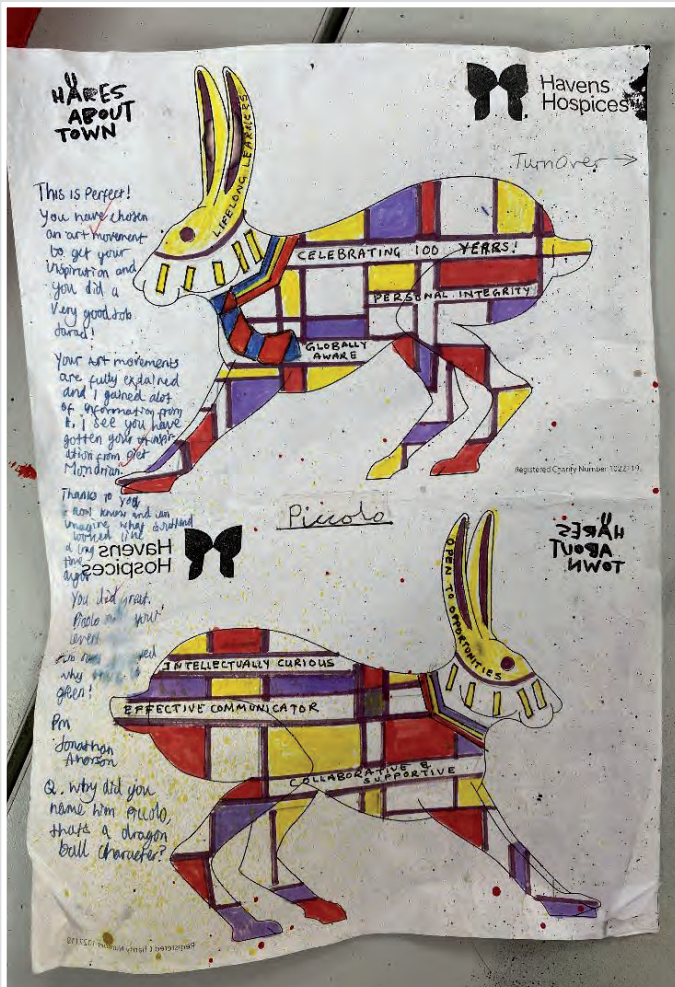 HARES
ABOUT
TOWN
Havens
Hospices
Turnover →
This is Perfect!
You have chosen
an art movement
to get your
inspiration and
you did a
very good Job
Your Art movements
are fully explained
and I gained alot
of information from
it, I see you have
gotten your
ation from piet
Mondrian.
Thanks to you
I now know and can
imagine what
looked like
a long
time
You did great.
your
why
green!
Jonathan
Q. Why did you
name him piccolo,
thats a dragon
ball character?
LIFELONG LEARNERS
CELEBRATING 100 YEARS!
PERSONAL INTEGRITY
GLOBALLY
AWARE
Registered Charity Number 1022119
Piccolo
Havens
Hospices
HARES
ABOUT
TOWN
OPEN TO OPPORTUNITIES
INTELLECTUALLY CURIOUS
EFFECTIVE COMMUNICATOR
COLLABORATIVE &
SUPPORTIVE
Registered Charity Number 1022119